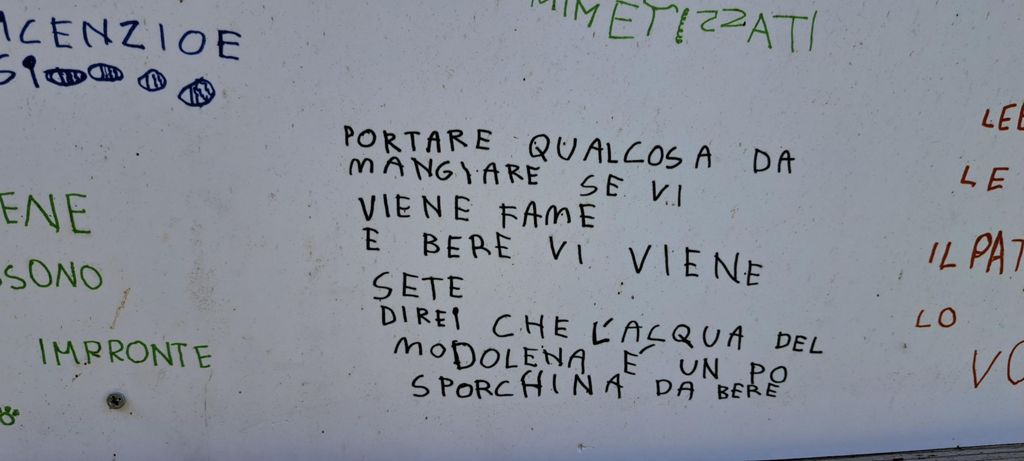 MIMETIZZATI
PORTARE QUALCOSA DA
MANGIARE SE VI
VIENE FAME
E BERE VI VIENE
SETE
DIREI CHE L'ACQUA DEL
MODOLENA É UN PO
SPORCHINA DA BERE
IMPRONTE
LE
IL PAT
LO